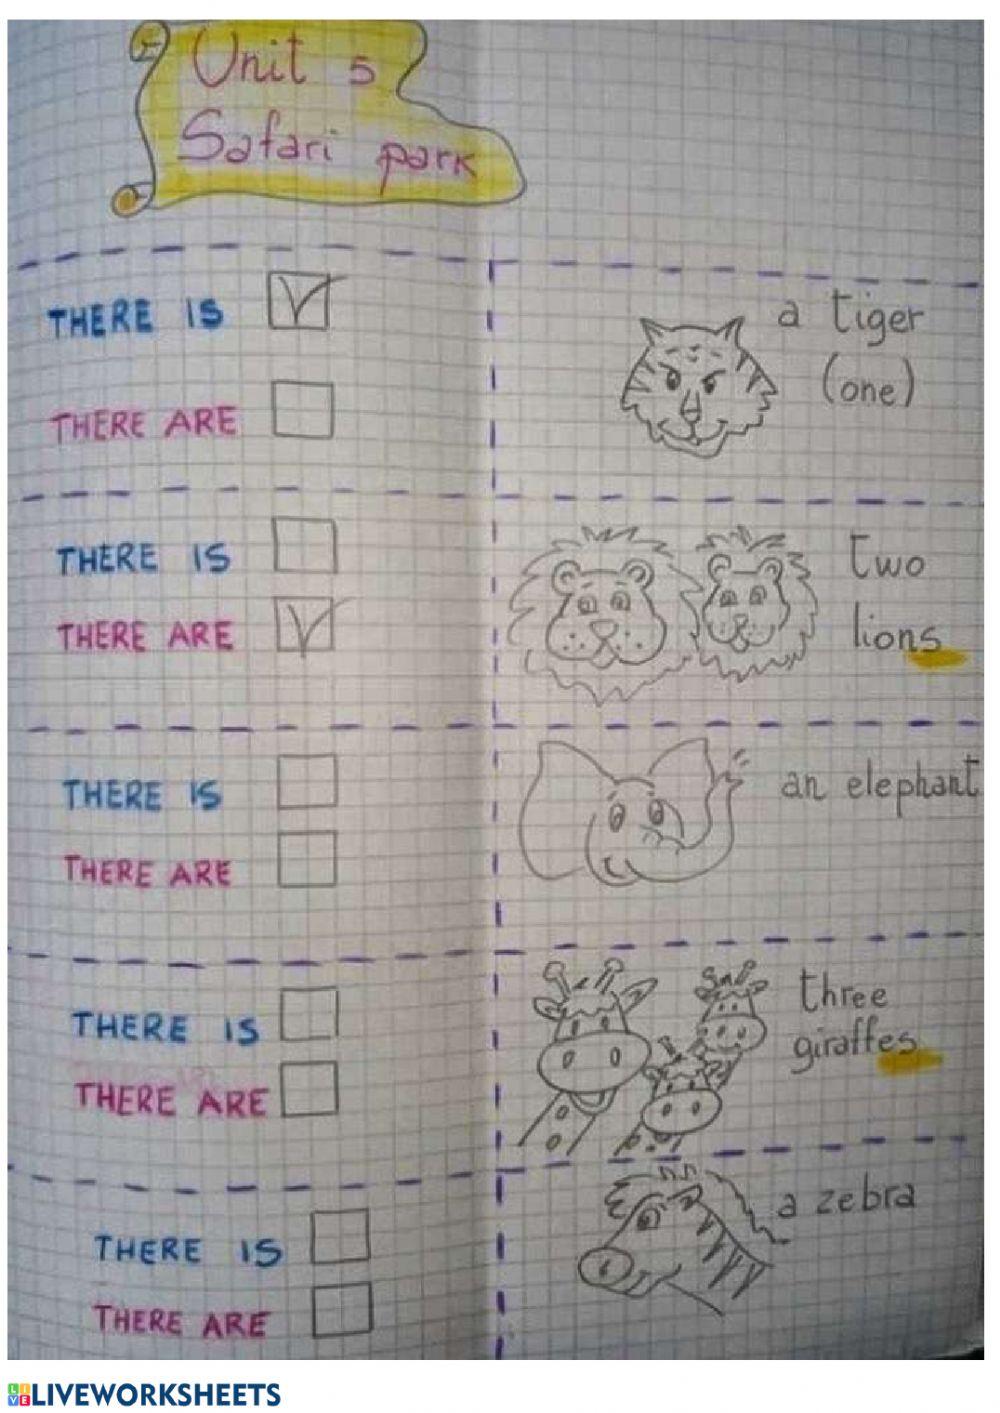 Unit 5
Safari park
THERE IS
a tiger
(one)
THERE ARE
THERE IS
two
lions
THERE ARE
THERE IS
an elephant
THERE ARE
THERE IS
three
giraffes
THERE ARE
THERE IS
a zebra
THERE ARE
LIVE LIVEWORKSHEETS